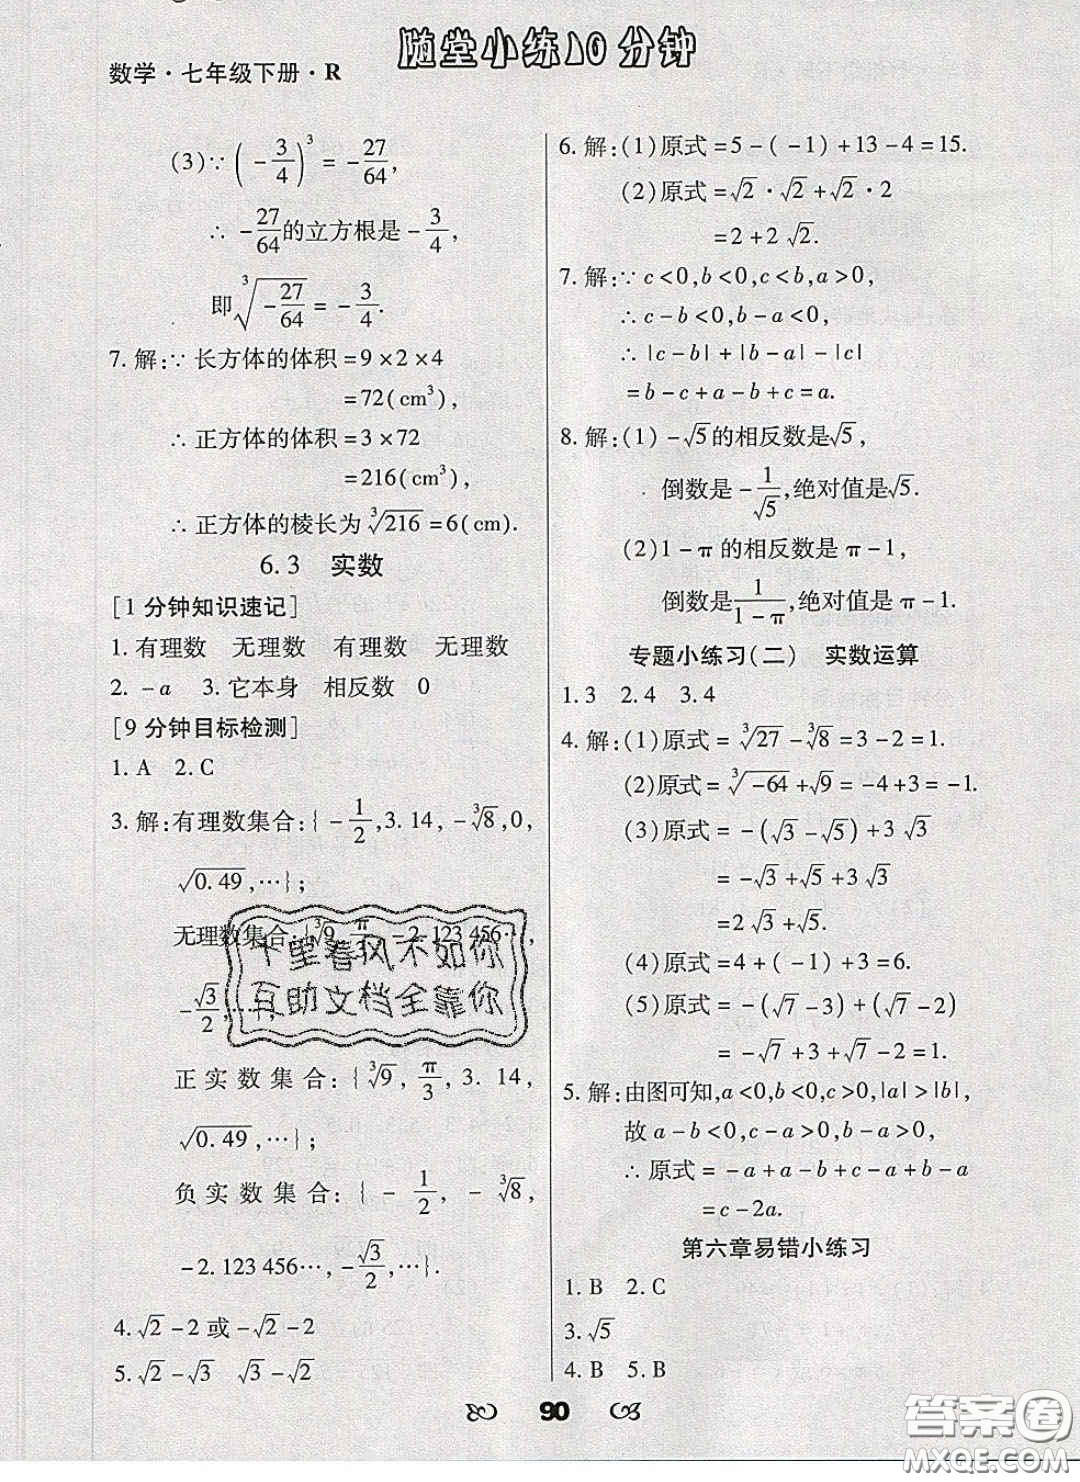 随堂小练10分钟
数学·七年级下册·R
(3)∵(-3/4)³=-27/64,
∴ -27/64的立方根是-3/4,
即∛(-27/64)=-3/4.
7.解:∵长方体的体积=9×2×4
=72(cm³),
∴正方体的体积=3×72
=216(cm³),
∴正方体的棱长为∛216=6(cm).
6.3 实数
[1分钟知识速记]
1.有理数 无理数 有理数 无理数
2.-a 3.它本身 相反数 0
[9分钟目标检测]
1.A 2.C
3.解:有理数集合:{-1/2,3.14,-∛8,0,
√0.49,…};
无理数集合:{∛9,π/3,-2.123 456…,
-√3/2,…};
正实数集合:{∛9,π/3,3.14,
√0.49,…};
负实数集合:{-1/2,-∛8,
-2.123 456…,-√3/2,…}.
4.√2-2或-√2-2
5.√2-√3 √3-√2
6.解:(1)原式=5-(-1)+13-4=15.
(2)原式=√2·√2+√2·2
=2+2√2.
7.解:∵c<0,b<0,c<b,a>0,
∴c-b<0,b-a<0,
∴|c-b|+|b-a|-|c|
=b-c+a-b+c=a.
8.解:(1)-√5的相反数是√5,
倒数是-1/√5,绝对值是√5.
(2)1-π的相反数是π-1,
倒数是1/(1-π),绝对值是π-1.
专题小练习(二) 实数运算
1.3 2.4 3.4
4.解:(1)原式=∛27-∛8=3-2=1.
(2)原式=∛-64+√9=-4+3=-1.
(3)原式=-(√3-√5)+3√3
=-√3+√5+3√3
=2√3+√5.
(4)原式=4+(-1)+3=6.
(5)原式=-(√7-3)+(√7-2)
=-√7+3+√7-2=1.
5.解:由图可知,a<0,b<0,c>0,|a|>|b|,
故a-b<0,c-a>0,b<0,
∴原式=-a+a-b+c-a+b-a
=c-2a.
第六章易错小练习
1.B 2.C
3.√5
4.B 5.B
90
十里春风不如你
互助文档全靠你
答案圈
MXQE.COM